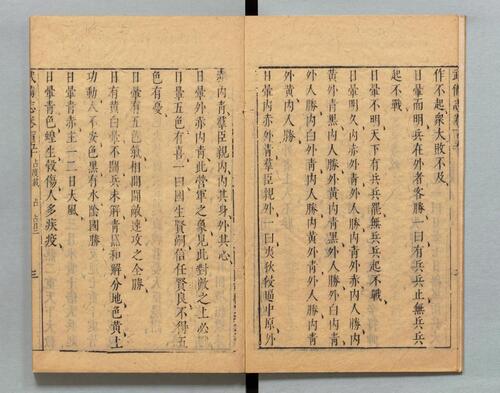 作不起衆大敗不及
日暈而明兵在外者客勝一曰有兵兵止無兵兵
起不戰
日暈不明天下有兵兵罷無兵兵起不戰
日暈明久內赤外青外人勝內青外赤內人勝內
黃外青黑內人勝外黃內青黑外人勝外白內青
外人勝內白外青內人勝內黃外青外人勝內青
外黃內人勝
日暈內赤外青羣臣親外一曰夷狄侵逼中原外
赤內青羣臣親內內其身外其心
日暈外赤內青此營軍之象見此對敵之上必
日暈五色有喜一曰國生賢嗣信任賢良不得五
色有憂
日暈有五色氣相間開敵速攻之全勝
日有黃白暈不鬬兵未解青爲和解分地色黃土
功動人不安色黑有水陰國勝
日暈青赤主一二日大風
日暈青色蝗生穀傷人多疾疫
武備志卷百五十 占度載 占 占日二 三